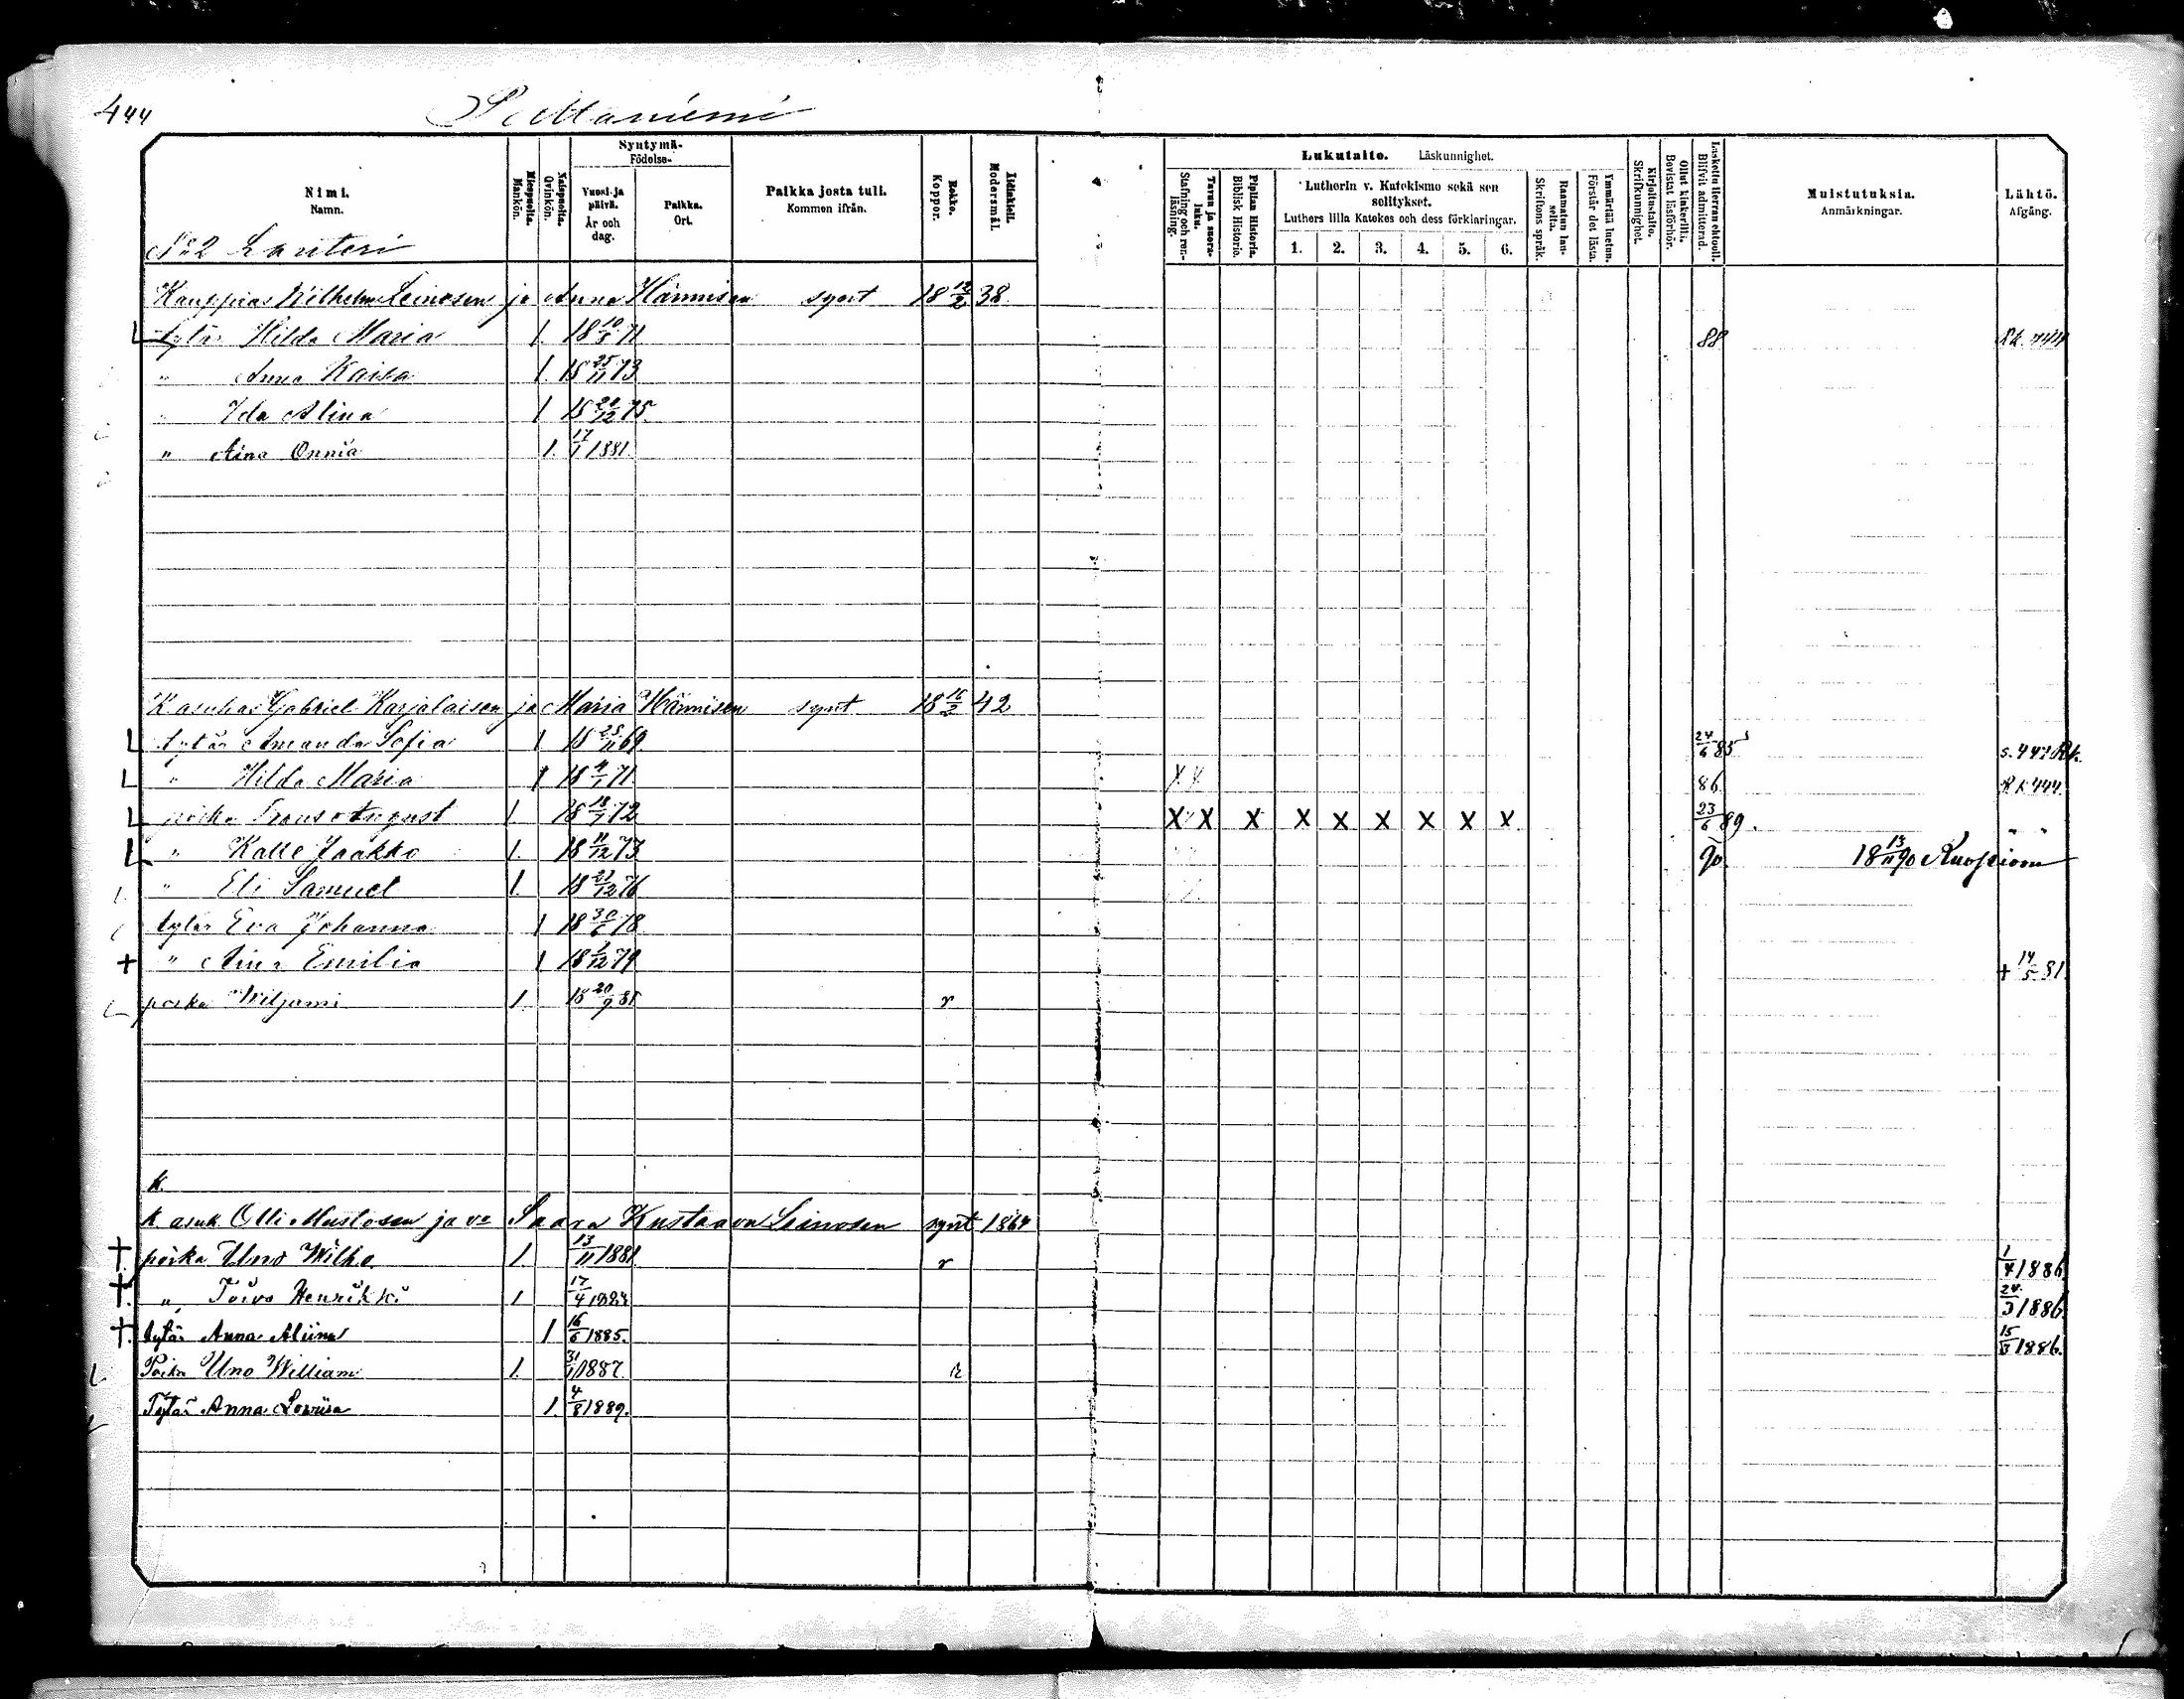 444
Nimi.
Namn.
Miespuolta.
Mankön.
Naispuolta.
Qvinkön.
Syntymä-
Födelse-
Vuosi ja päivä.
År och dag.
Paikka.
Ort.
Paikka josta tuli.
Kommen ifrån.
Rokko.
Koppor.
Äidinkieli.
Modersmål.
Lukutaito. Läskunnighet.
Tavuu ja suora-luku.
Stafning och ren-läsning.
Piplian Historia.
Biblisk Historie.
Lutherin v. Katekismo sekä sen selitykset.
Luthers lilla Katekes och dess förklaringar.
1. 2. 3. 4. 5. 6.
Raamatun lau-seita.
Skriftens språk.
Ymmärtää luetun.
Förstår det lästa.
Kirjoitustaito.
Skrifkunnighet.
Ollut kinkerillä.
Bevistat läsförhör.
Laskettu Herran ehtooll.
Blifvit admitterad.
Muistutuksia.
Anmärkningar.
Lähtö.
Afgång.
No 2 Lauteri
Kauppias Wilhelm Leinosen ja Anna Hännisen synt 18 12/2 38.
tytär Hilda Maria 1. 18 10/5 71 88 Rk. 444
" Anna Kaisa 1. 18 25/11 73
" Ida Alina 1 18 20/12 75.
" Aina Onnia 1. 17/1 1881.
K asukas Gabriel Karjalaisen ja Maria Hännisen synt 18 16/2 42
tytär Amanda Sofia 1 18 25/11 69 24/6 85 s. 447 Rk.
" Hilda Maria 1 18 4/1 71. X X 86. R k 444.
poika Frans August 1. 18 18/7 72 X X X X X X X X X 23/6 89. " "
" Kalle Jaakko 1. 18 11/12 73 90. 18 13/11 90 Kuopioon
" Eli Samuel 1. 18 21/12 76
tytär Eva Johanna 1 18 30/6 78
+ " Aina Emilia 1 18 /12 79 + 14/5 81.
poika Wiljami 1. 18 20/9 81 r
k.
k asuk Olli Mustosen ja vo Saara Kustaava Leinosen synt 1864
† poika Uno Wilho 1. 13/11 1881 r 1/4 1886
†. " Toivo Henrikki 1 17/4 24/3 1886.
†. tytär Anna Aliina 1 16/6 1885. 15/3 1886.
Poika Uno William 1. 31/1 1887. R
Tytär Anna Lowiisa 1. 4/8 1889.